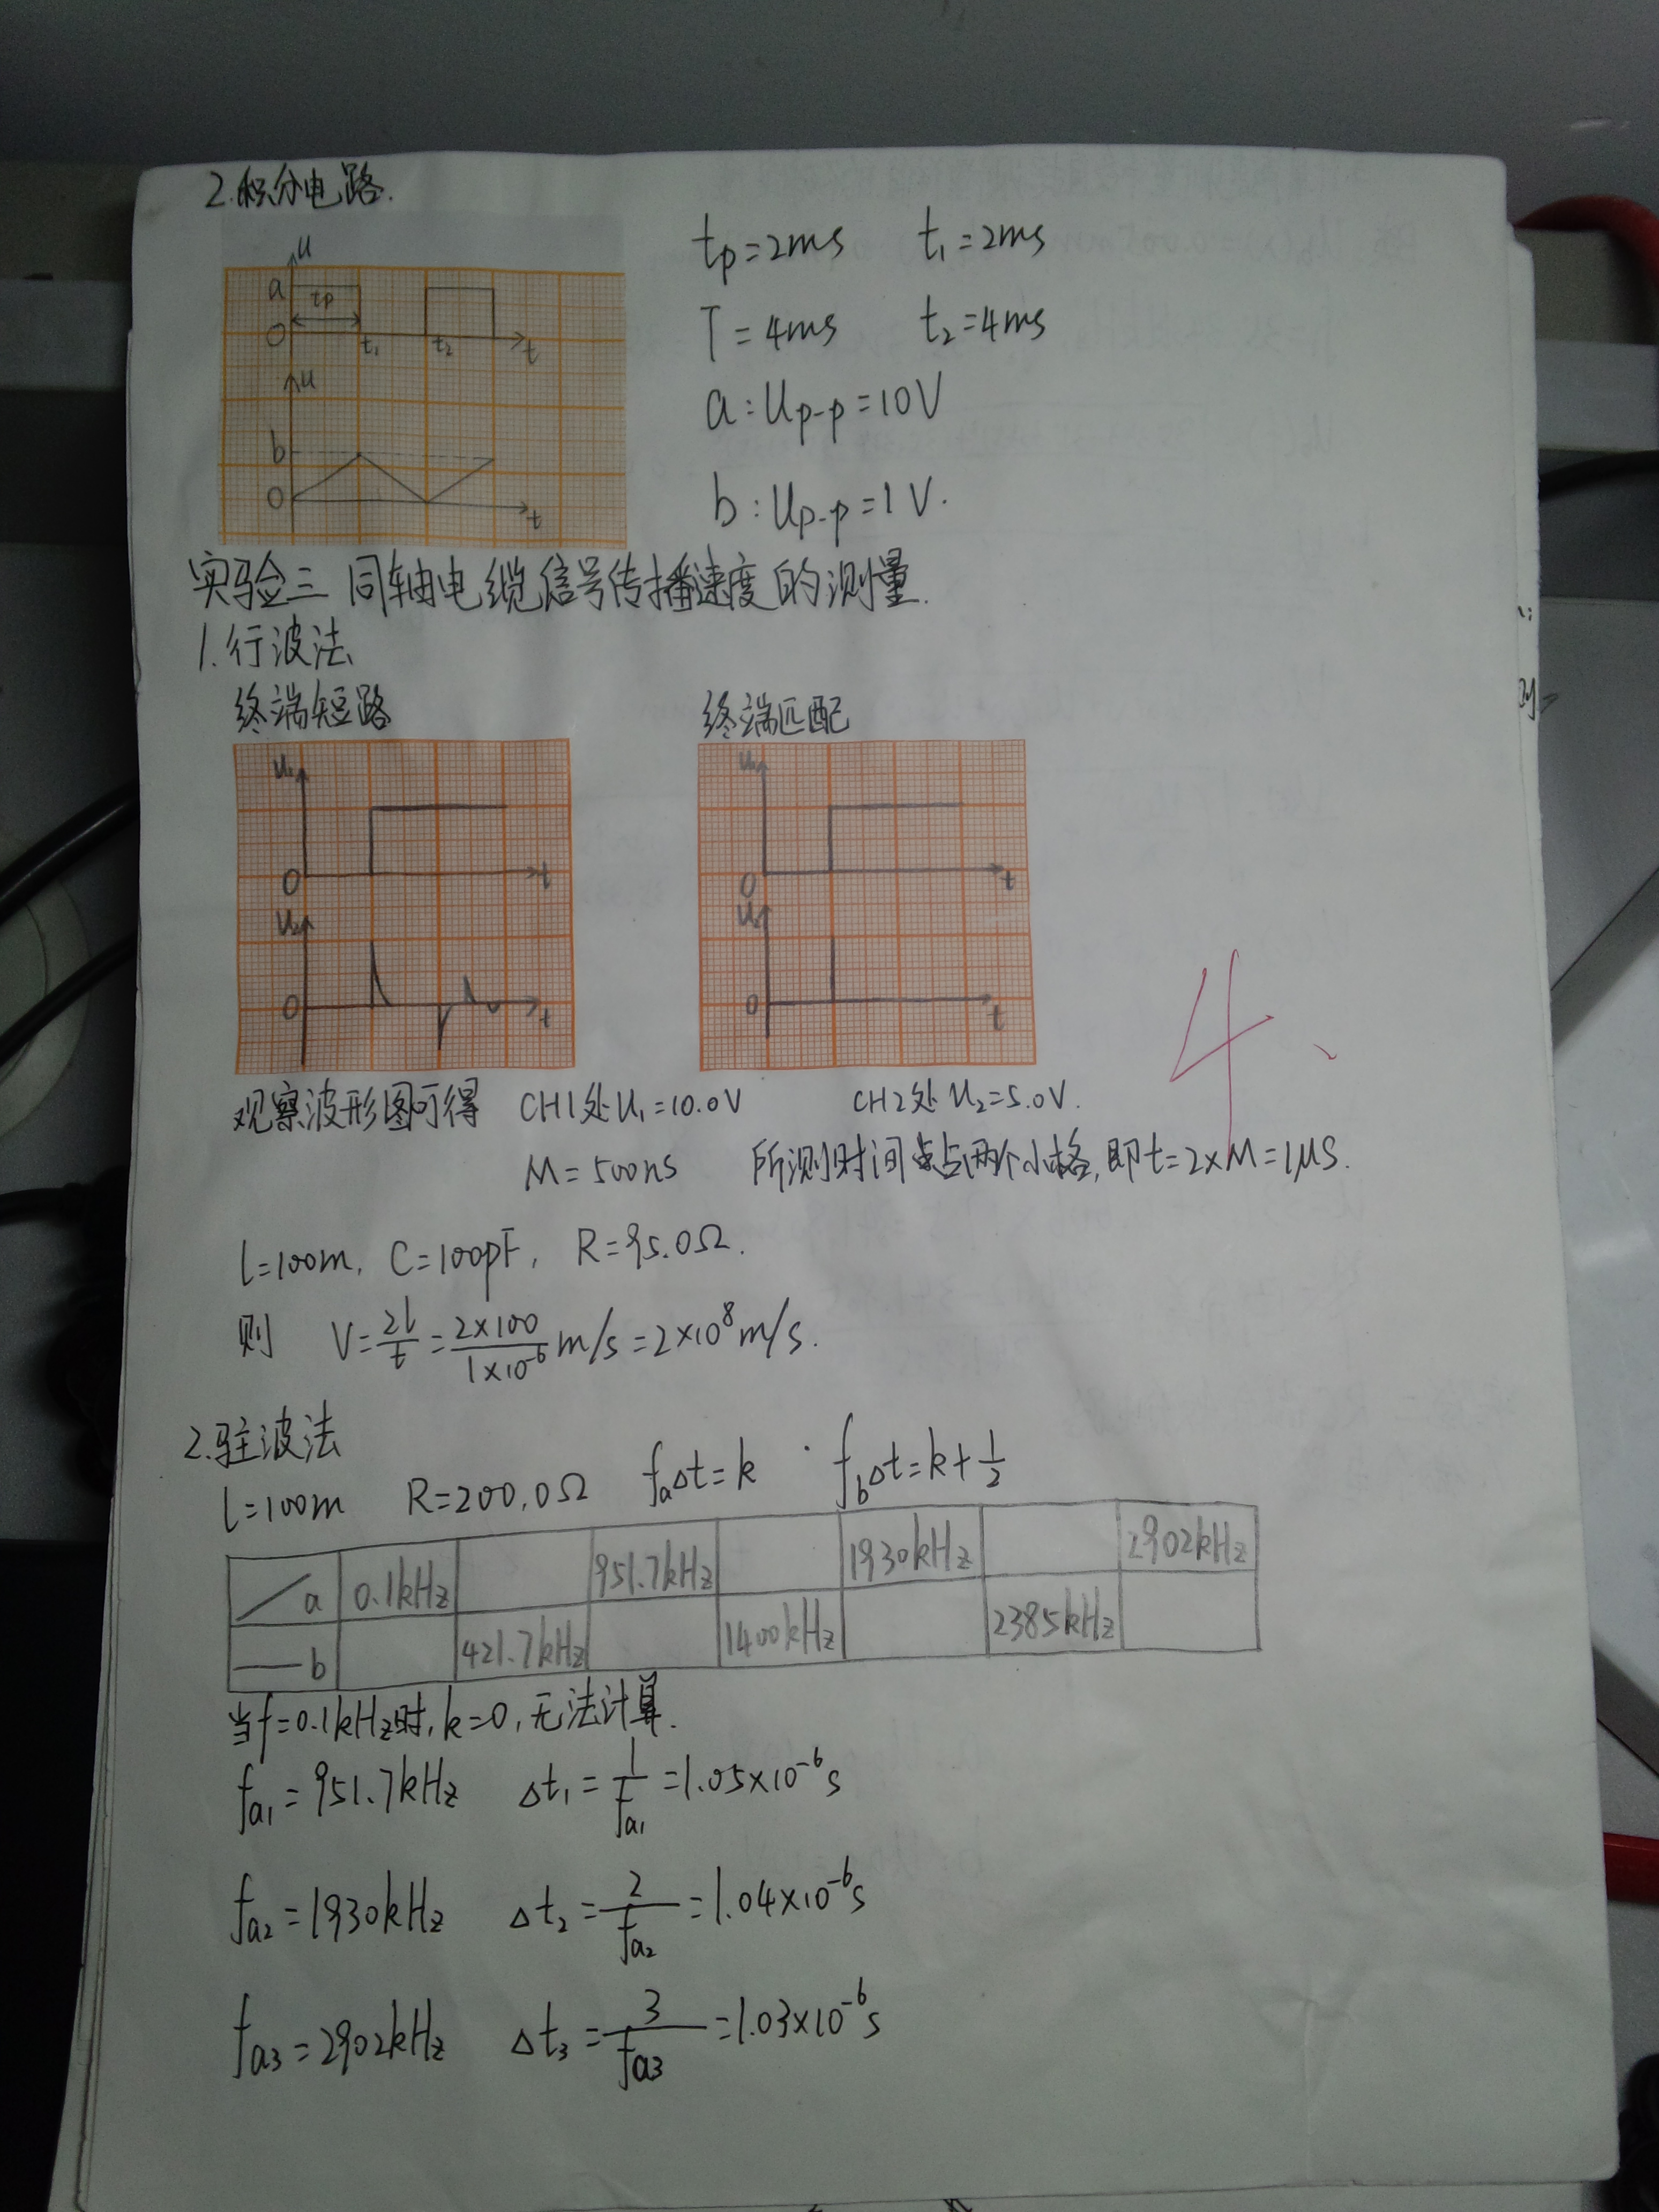 2.积分电路.
u
a
tp
0
t₁
t₂
t
u
b
0
t
tp=2ms t₁=2ms
T=4ms t₂=4ms
a:Up-p=10V
b:Up-p=1V.
实验三 同轴电缆信号传播速度的测量.
1.行波法
终端短路 终端匹配
U₁
0
t
U₂
0
t
U₁
0
t
0
t
4
观察波形图可得 CH1处U₁=10.0V CH2处U₂=5.0V.
M=500ns 所测时间占两个小格,即t=2×M=1μS.
l=100m, C=100pF, R=95.0Ω.
则 V=2l/t=2×100/1×10⁻⁶ m/s=2×10⁸m/s.
2.驻波法
l=100m R=200.0Ω faΔt=k fbΔt=k+1/2
a 0.1kHz 951.7kHz 1930kHz 2902kHz
b 421.7kHz 1400kHz 2385kHz
当f=0.1kHz时,k=0,无法计算.
fa₁=951.7kHz Δt₁=1/fa₁=1.05×10⁻⁶s
fa₂=1930kHz Δt₂=2/fa₂=1.04×10⁻⁶s
fa₃=2902kHz Δt₃=3/fa₃=1.03×10⁻⁶s